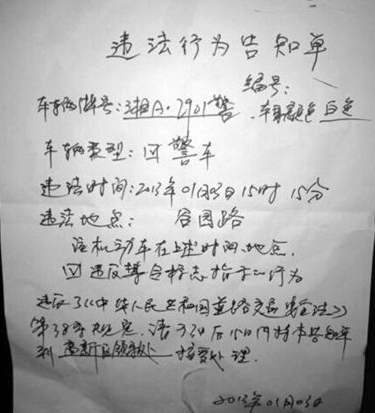 违法行为告知单
编号:
车辆牌号:湘A·2901警 车身颜色 白色
车辆类型:☑警车
违法时间:2013年01月03日15时15分
违法地点: 谷园路
该机动车在上述时间、地点,
☑违反禁令标志指示行为
违反了《中华人民共和国道路交通安全法》
第38条规定,请于 日后 小时内持本告知单
到 高新区领勤处 接受处理.
2013年01月03日